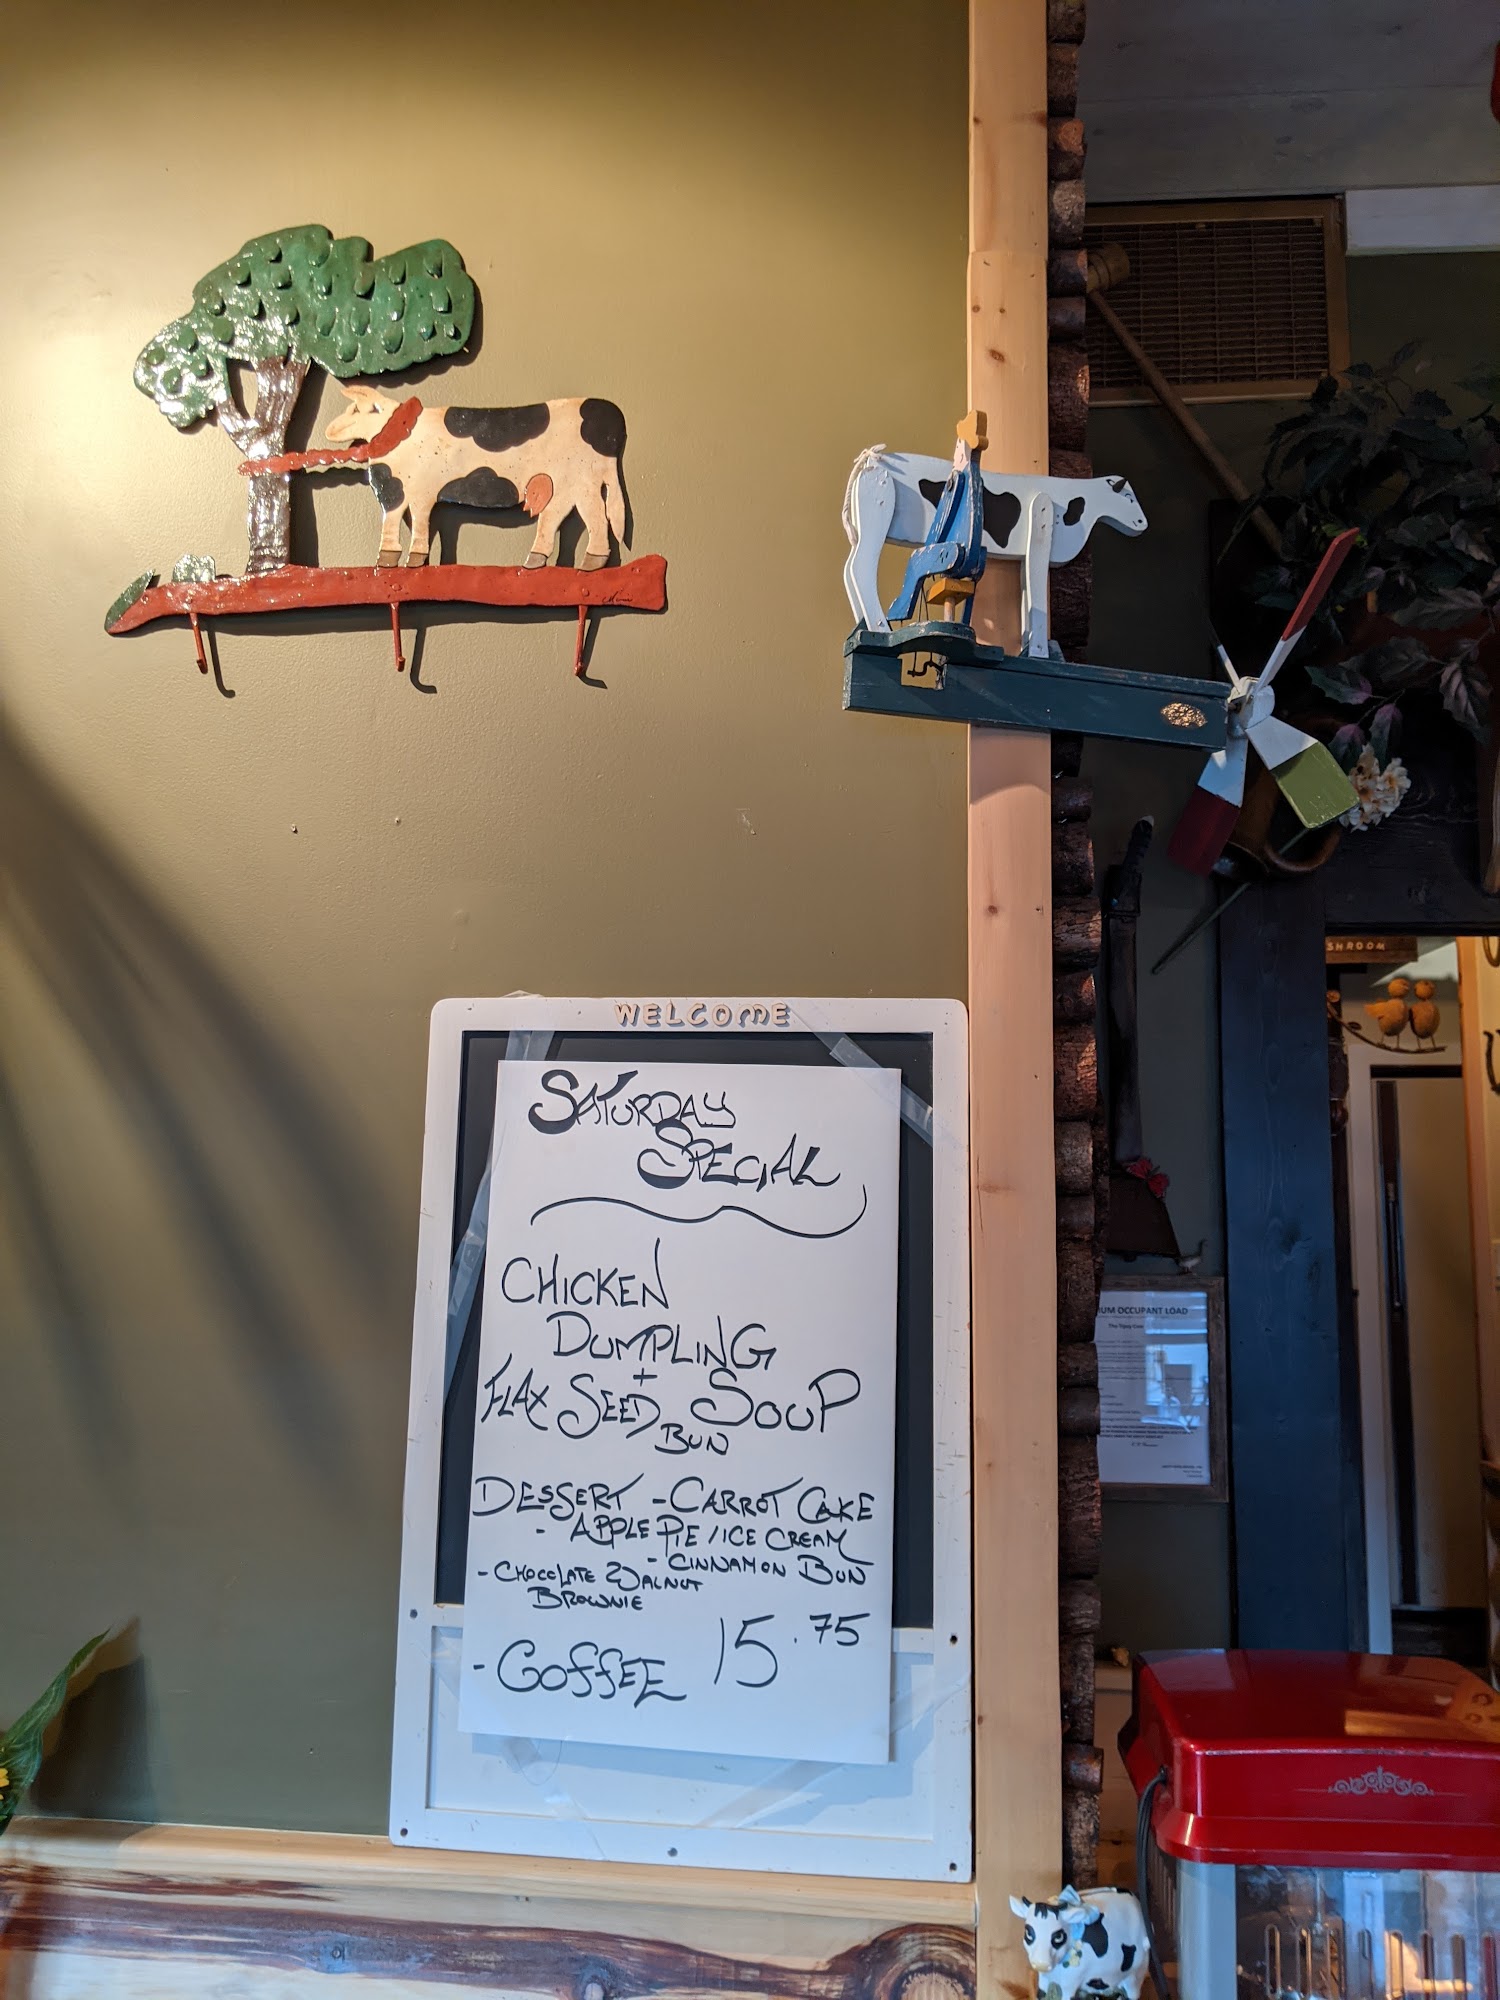 WELCOME
SATURDAY
SPECIAL
CHICKEN
DUMPLING
+
FLAX SEED SOUP
BUN
DESSERT - CARROT CAKE
- APPLE PIE / ICE CREAM
- CINNAMON BUN
- CHOCOLATE WALNUT
BROWNIE
15.75
- COFFEE
SHROOM
IUM OCCUPANT LOAD
The Tipsy Cow